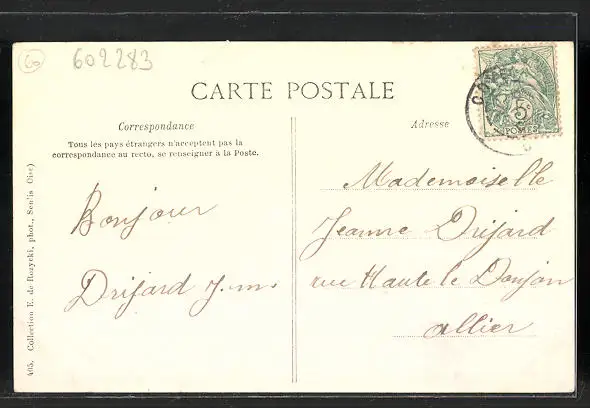 60
602283
CARTE POSTALE
Correspondance
Tous les pays étrangers n'acceptent pas la
correspondance au recto, se renseigner à la Poste.
Bonjour
Drifard J.m.
Adresse
5c
POSTES
Mademoiselle
Jeanne Drifard
rue Haute le Donjon
allier
405. Collection E. de Rozycki, phot., Senlis (Oise)